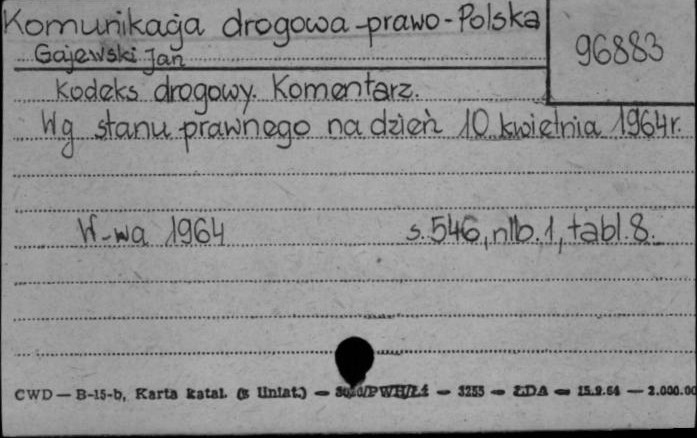 Komunikacja drogowa-prawo-Polska
96883
Gajewski Jan
Kodeks drogowy. Komentarz.
Wg stanu prawnego na dzień 10 kwietnia 1964r.
W-wa 1964 s.546, nlb.1, tabl.8.
CWD — B-15-b, Karta katal. — 3255 — ŁDA — 15.9.64 — 2.000.00